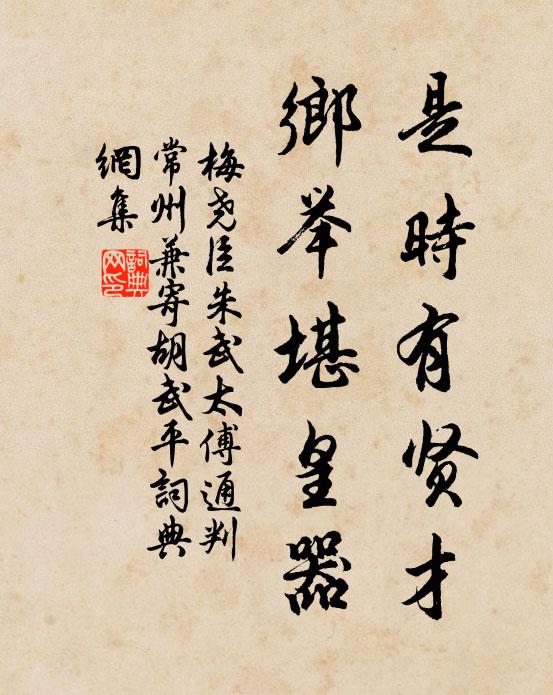 是時有贤才
鄉举堪皇器
梅尧臣朱武太傅通判
常州兼寄胡武平詞典
網集
詞典
网印